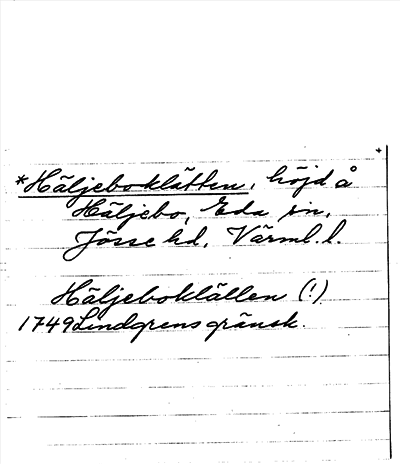 *Häljeboklätten, höjd å
Häljebo, Eda sn,
Jösse hd, Värml. l.
Häljeboklällen (!)
1749 Lindgrens gränsk.